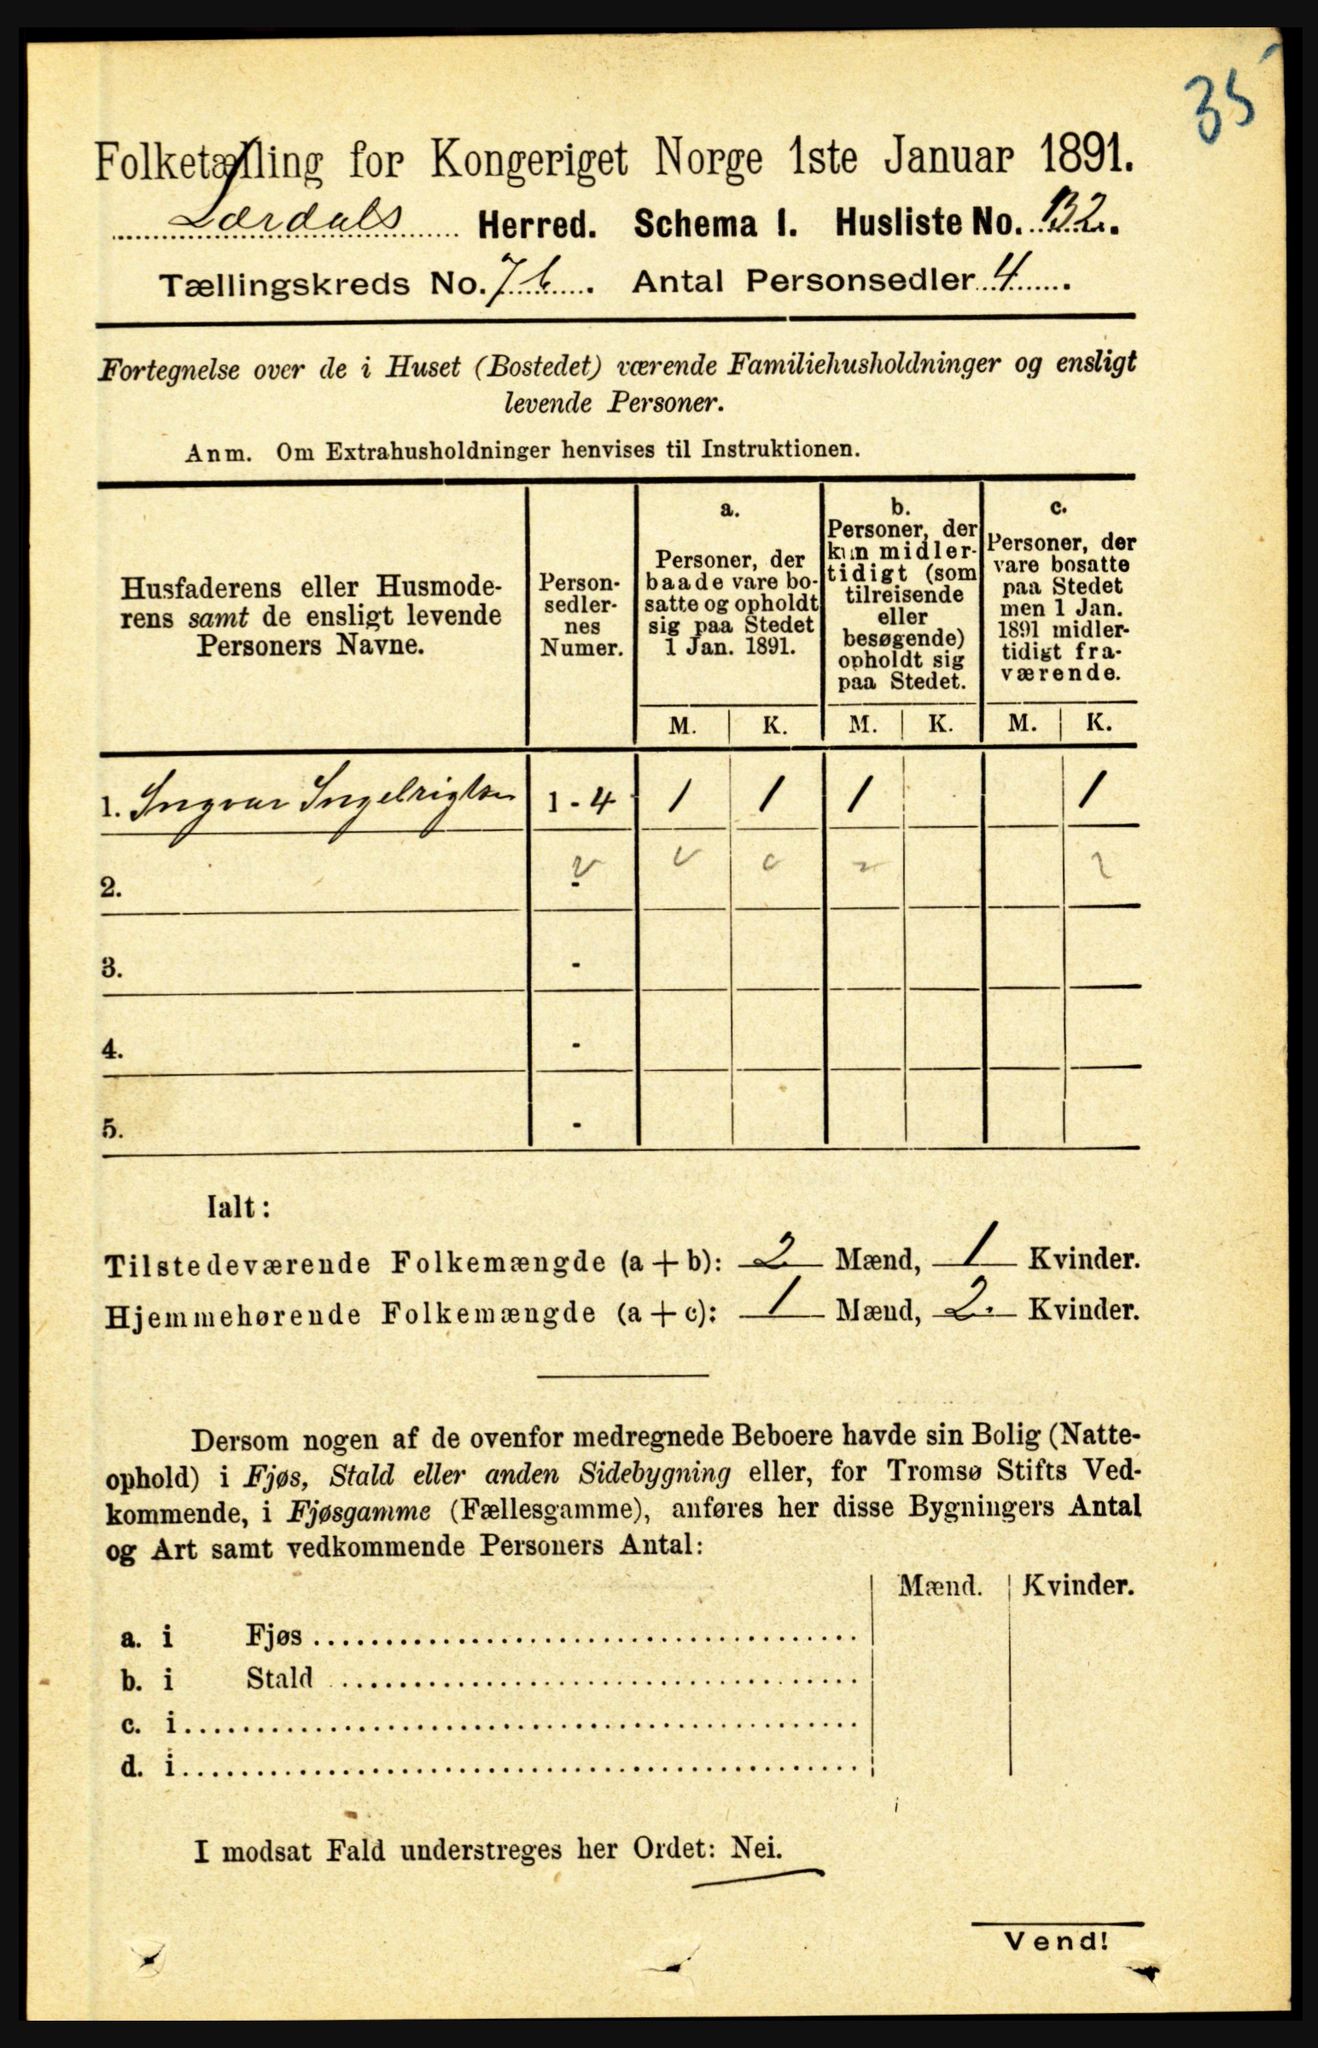 35
Folketælling for Kongeriget Norge 1ste Januar 1891.
Lærdals Herred. Schema I. Husliste No. 132.
Tællingskreds No. 7 b. Antal Personsedler 4.
Fortegnelse over de i Huset (Bostedet) værende Familiehusholdninger og ensligt
levende Personer.
Anm. Om Extrahusholdninger henvises til Instruktionen.
Husfaderens eller Husmode-
rens samt de ensligt levende
Personers Navne.
Person-
sedler-
nes
Numer.
a.
Personer, der
baade vare bo-
satte og opholdt
sig paa Stedet
1 Jan. 1891.
b.
Personer, der
kun midler-
tidigt (som
tilreisende
eller
besøgende)
opholdt sig
paa Stedet.
c.
Personer, der
vare bosatte
paa Stedet
men 1 Jan.
1891 midler-
tidigt fra-
værende.
M. K. M. K. M. K.
1. Ingvar Ingelrigtsen 1-4 1 1 1 1
2. -
3. -
4. -
5. -
Ialt:
Tilstedeværende Folkemængde (a + b): 2 Mænd, 1 Kvinder.
Hjemmehørende Folkemængde (a + c): 1 Mænd, 2. Kvinder.
Dersom nogen af de ovenfor medregnede Beboere havde sin Bolig (Natte-
ophold) i Fjøs, Stald eller anden Sidebygning eller, for Tromsø Stifts Ved-
kommende, i Fjøsgamme (Fællesgamme), anføres her disse Bygningers Antal
og Art samt vedkommende Personers Antal:
Mænd. Kvinder.
a. i Fjøs
b. i Stald
c. i
d. i
I modsat Fald understreges her Ordet: Nei.
Vend!